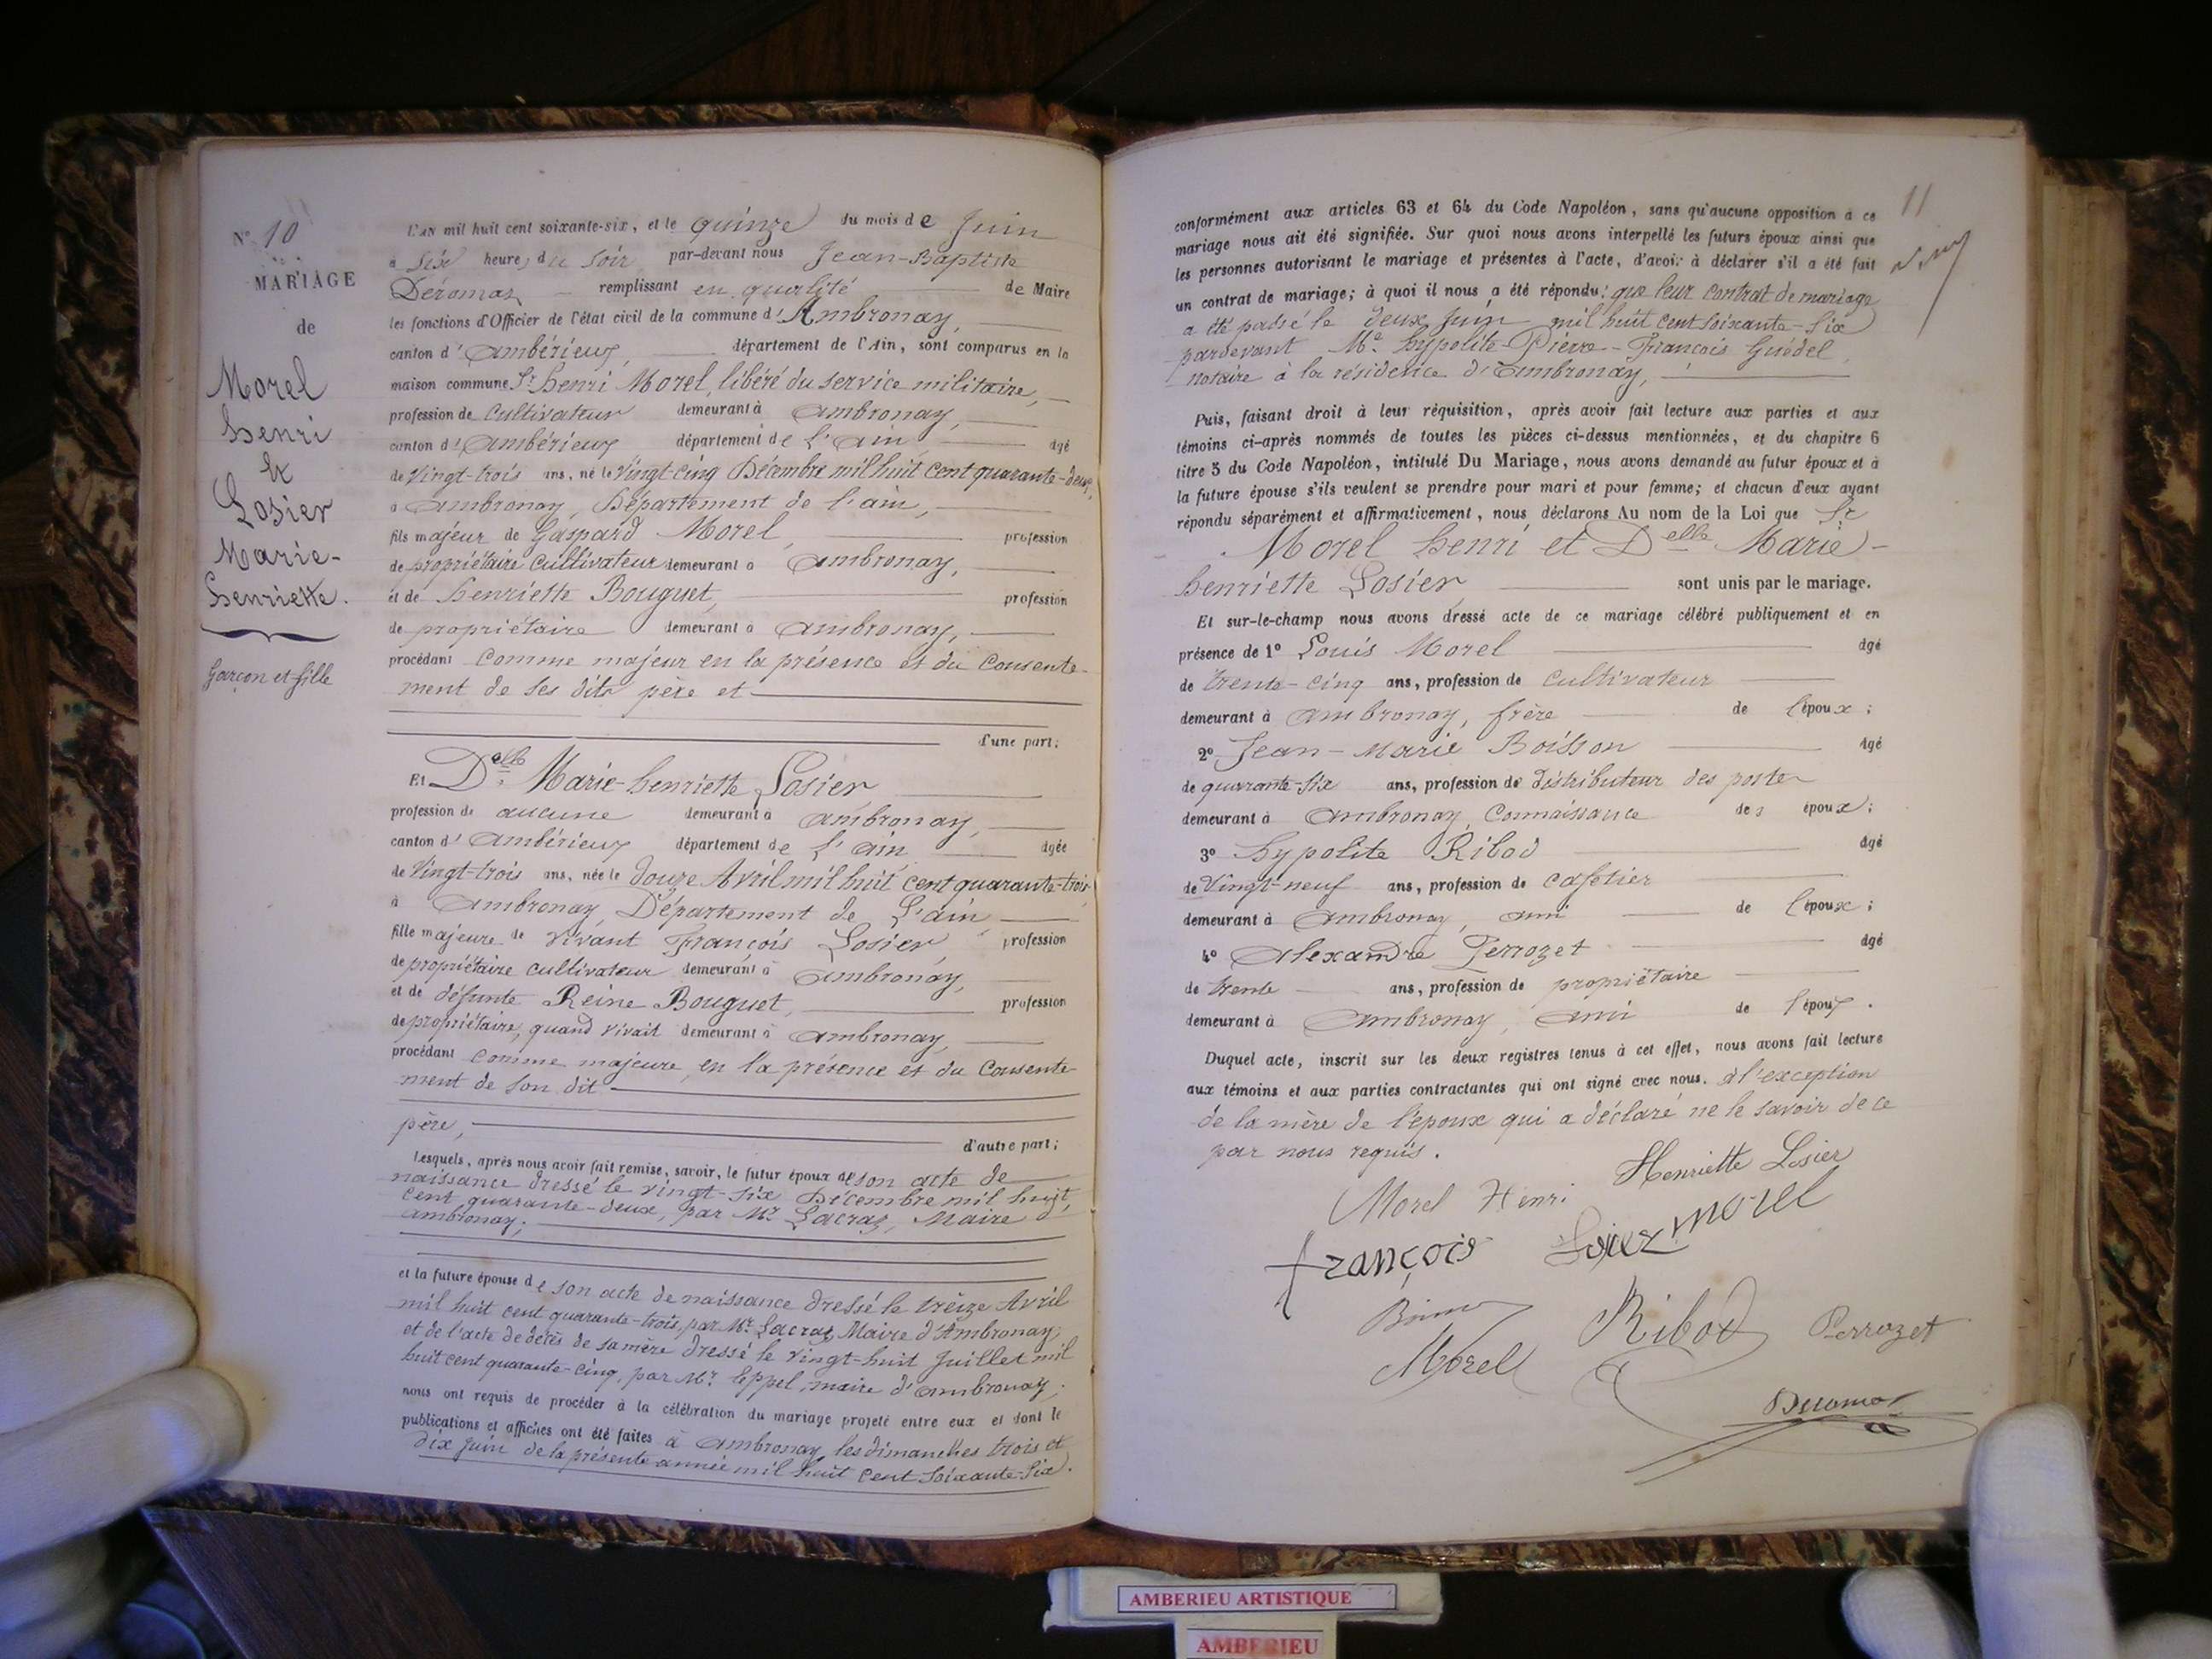 N° 10
MARIAGE
de
Morel
henri
&
Losier
Marie-
henriette.
Garçon et fille
L'AN mil huit cent soixante-six, et le quinze du mois de Juin
à six heures du soir par-devant nous Jean-Baptiste
Déromas remplissant en qualité de Maire
les fonctions d'Officier de l'état civil de la commune d'Ambronay,
canton d'ambérieux, département de l'Ain, sont comparus en la
maison commune Sr henri Morel, libéré du service militaire,
profession de cultivateur demeurant à ambronay,
canton d'ambérieux département de L'ain âgé
de Vingt-trois ans, né le Vingt-cinq Décembre mil huit cent quarante-deux,
à ambronay, Département de l'ain,
fils majeur de Gaspard Morel, profession
de propriétaire cultivateur demeurant à ambronay,
et de henriette Bouguet, profession
de propriétaire demeurant à ambronay,
procédant comme majeur en la présence et du consente-
ment de ses dits père et
d'une part;
Et Delle Marie-henriette Losier
profession de aucune demeurant à ambronay,
canton d'ambérieux département de L'ain âgée
de Vingt-trois ans, née le douze Avril mil huit cent quarante-trois
à ambronay, Département de L'ain,
fille majeure de vivant François Losier, profession
de propriétaire cultivateur demeurant à ambronay,
et de défunte Reine Bouguet, profession
de propriétaire, quand vivait demeurant à ambronay,
procédant comme majeure, en la présence et du consente-
ment de son dit
père, d'autre part;
Lesquels, après nous avoir fait remise, savoir, le futur époux de son acte de
naissance dressé le vingt-six Décembre mil huit
cent quarante-deux, par Mr Lacraz, Maire d'
ambronay;
et la future épouse de son acte de naissance dressé le treize Avril
mil huit cent quarante-trois, par Mr. Lacraz Maire d'Ambronay;
et de l'acte de décès de sa mère dressé le vingt-huit Juillet mil
huit cent quarante-cinq, par Mr. Eppel, maire d'ambronay;
nous ont requis de procéder à la célébration du mariage projeté entre eux et dont les
publications et affiches ont été faites à ambronay, les dimanches trois et
dix Juin de la présente année mil huit cent soixante-six.
11
conformément aux articles 63 et 64 du Code Napoléon, sans qu'aucune opposition à ce
mariage nous ait été signifiée. Sur quoi nous avons interpellé les futurs époux ainsi que
les personnes autorisant le mariage et présentes à l'acte, d'avoir à déclarer s'il a été fait
un contrat de mariage; à quoi il nous a été répondu: que leur contrat de mariage
a été passé le deux Juin mil huit cent soixante-six
pardevant Me. hypolite-Pierre-François Guédel,
notaire à la résidence d'ambronay,
Puis, faisant droit à leur réquisition, après avoir fait lecture aux parties et aux
témoins ci-après nommés de toutes les pièces ci-dessus mentionnées, et du chapitre 6
titre 5 du Code Napoléon, intitulé Du Mariage, nous avons demandé au futur époux et à
la future épouse s'ils veulent se prendre pour mari et pour femme; et chacun d'eux ayant
répondu séparément et affirmativement, nous déclarons Au nom de la Loi que Sr
Morel henri et Delle Marie-
henriette Losier sont unis par le mariage.
Et sur-le-champ nous avons dressé acte de ce mariage célébré publiquement et en
présence de 1° Louis Morel âgé
de trente-cinq ans, profession de cultivateur
demeurant à ambronay, frère de l'époux;
2° Jean-Marie Boisson âgé
de quarante-six ans, profession de distributeur des postes
demeurant à ambronay, connaissance des époux;
3° hypolite Ribod âgé
de Vingt-neuf ans, profession de cafetier
demeurant à ambronay, ami de l'époux;
4° Alexandre Perrozet âgé
de trente ans, profession de propriétaire
demeurant à ambronay, ami de l'époux.
Duquel acte, inscrit sur les deux registres tenus à cet effet, nous avons fait lecture
aux témoins et aux parties contractantes qui ont signé avec nous. à l'exception
de la mère de l'époux qui a déclaré ne le savoir de ce
par nous requis.
Morel Henri Henriette Losier
françois Losier morel
Ribod Perrozet
Morel
Deromas
AMBERIEU ARTISTIQUE
AMBERIEU